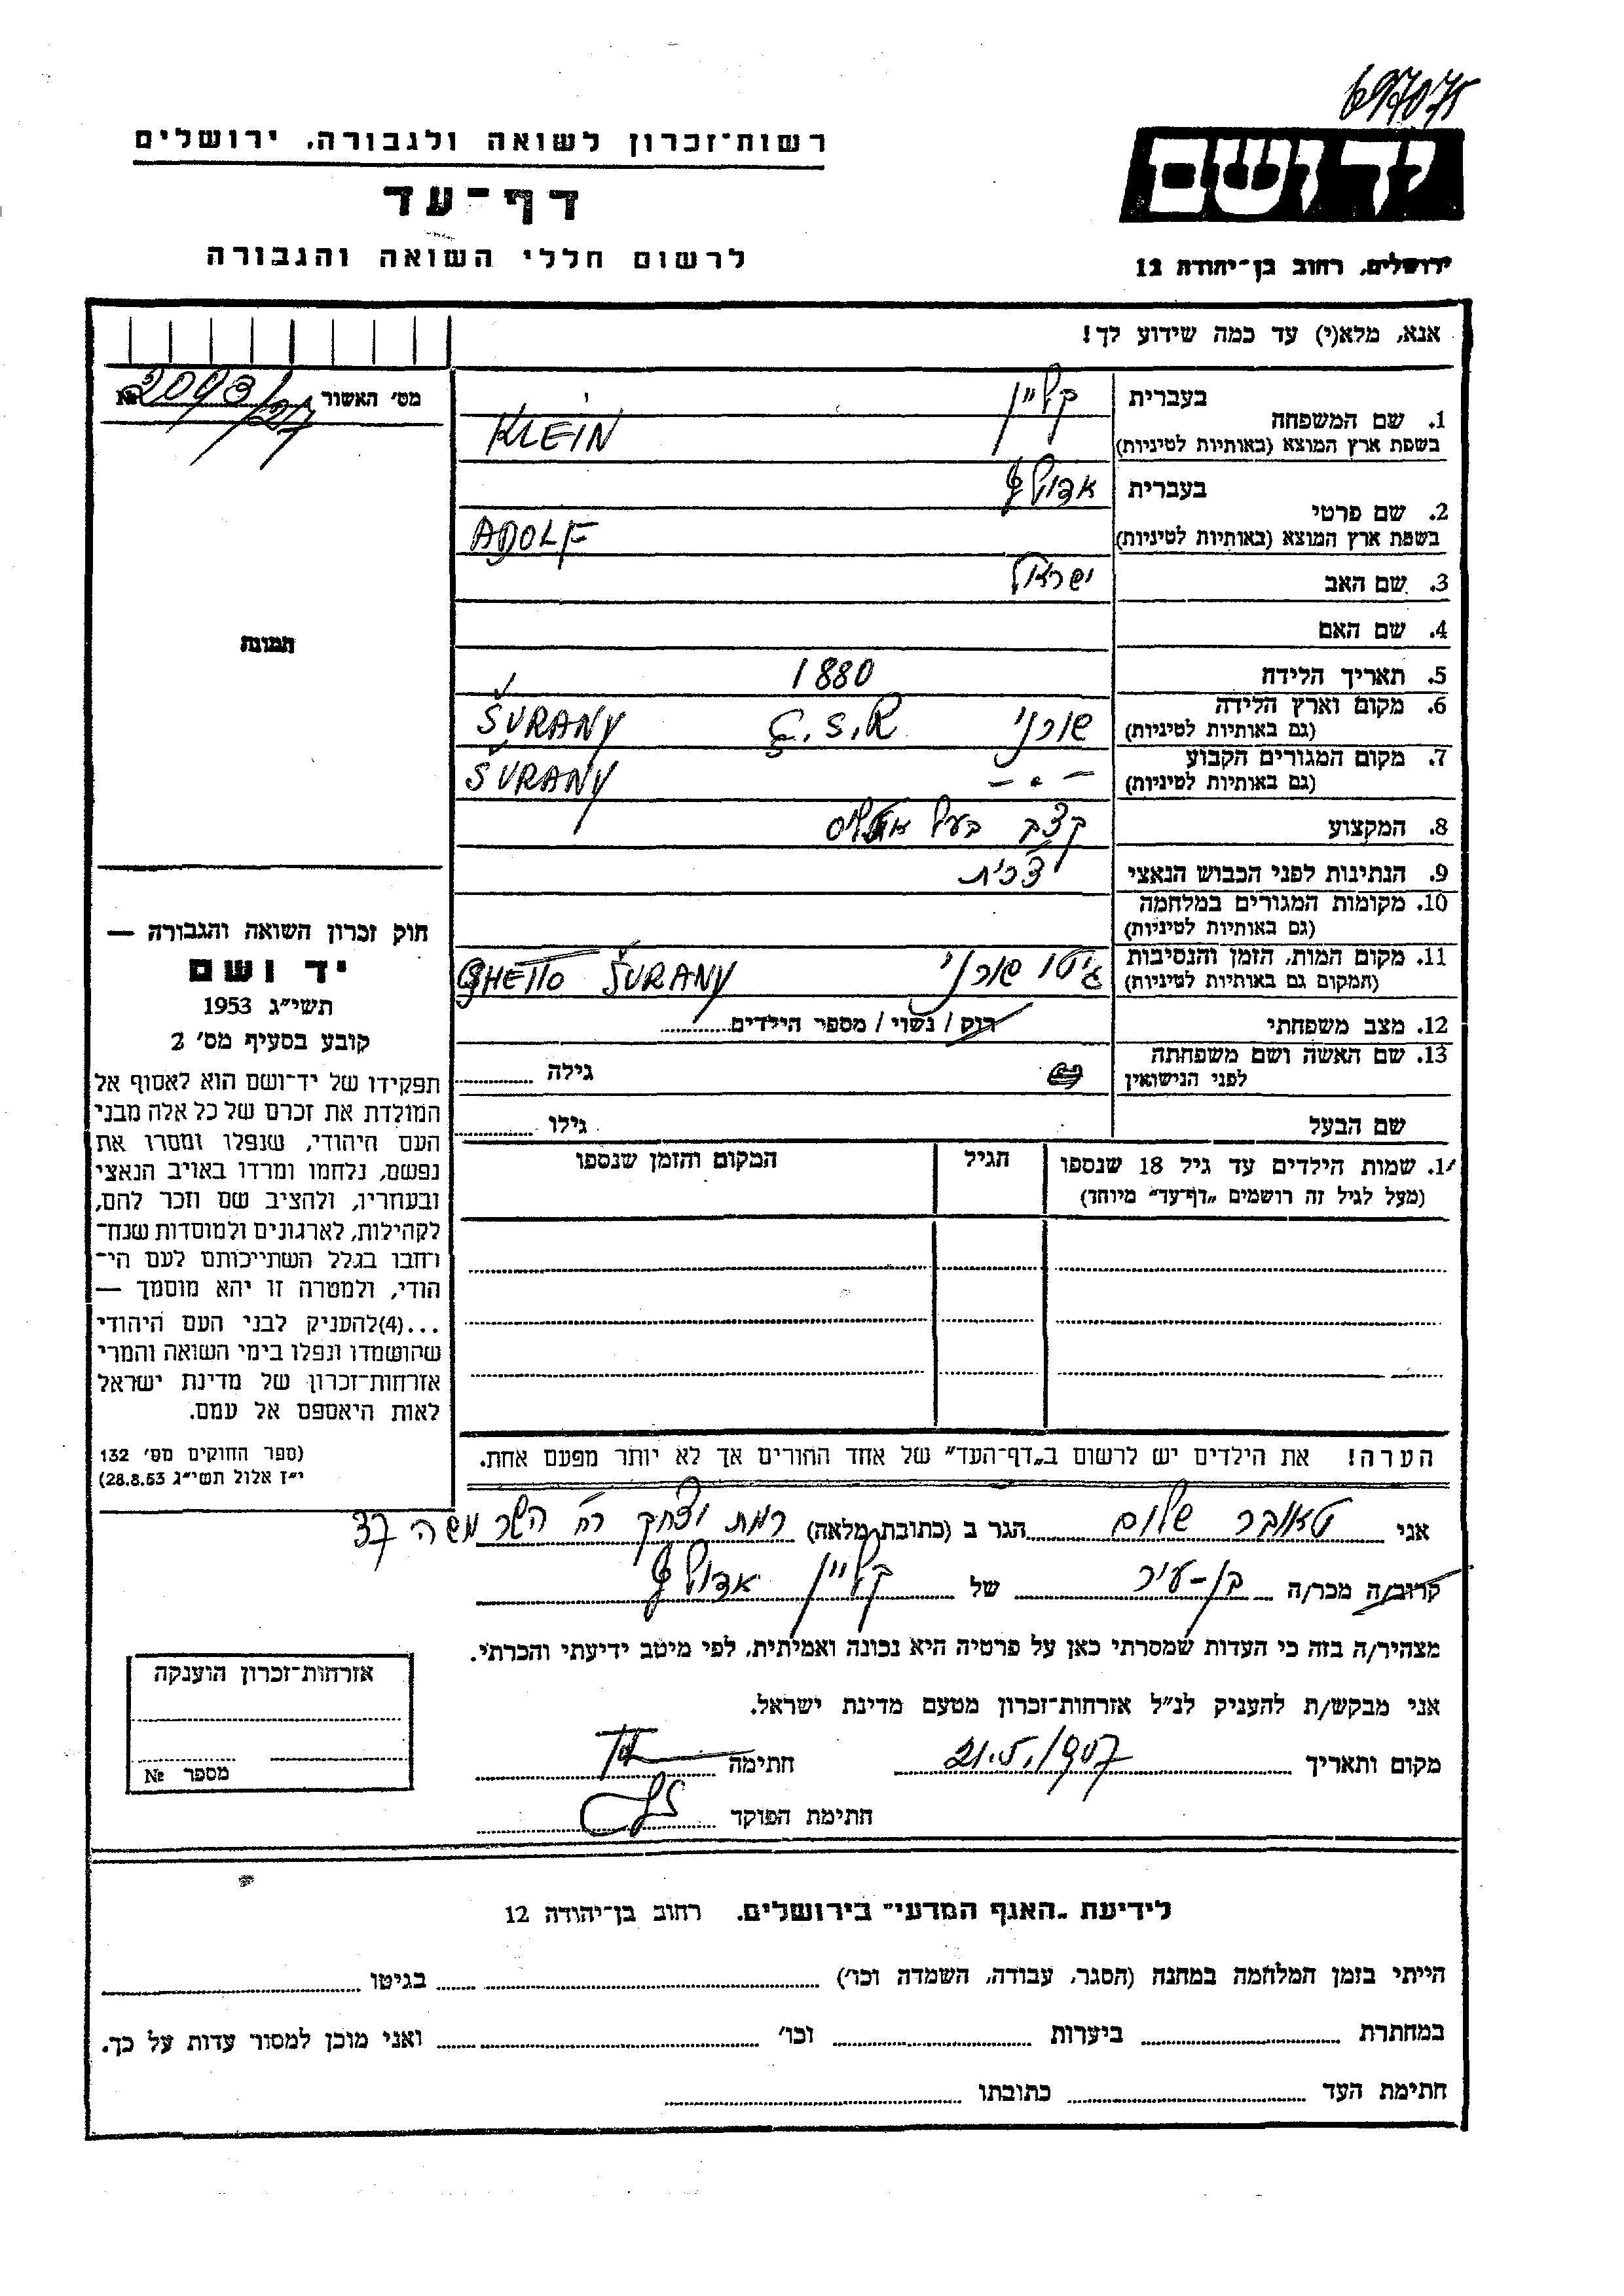 697075
רשות־זכרון לשואה ולגבורה, ירושלים
יד ושם
דף־עד
לרשום חללי השואה והגבורה
ירושלים, רחוב בן־יהודה 12
אנא, מלא(י) עד כמה שידוע לך!
מס׳ האשור №
1. שם המשפחה
בעברית קליין
בשפת ארץ המוצא (באותיות לטיניות) KLEIN
2. שם פרטי
בעברית אדולף
בשפת ארץ המוצא (באותיות לטיניות) ADOLF
3. שם האב ישראל
4. שם האם
תמונה
5. תאריך הלידה 1880
6. מקום וארץ הלידה
(גם באותיות לטיניות) שורני Č.S.R ŠURANY
7. מקום המגורים הקבוע
(גם באותיות לטיניות) — . — ŠURANY
8. המקצוע קצב בעל
9. הנתינות לפני הכבוש הנאצי צ'כית
10. מקומות המגורים במלחמה
(גם באותיות לטיניות)
11. מקום המות, הזמן והנסיבות
(המקום גם באותיות לטיניות) גיטו שורני GHETTO ŠURANY
12. מצב משפחתי רוק / נשוי / מספר הילדים
13. שם האשה ושם משפחתה
לפני הנישואין גילה
שם הבעל גילו
1. שמות הילדים עד גיל 18 שנספו הגיל המקום והזמן שנספו
(מעל לגיל זה רושמים „דף־עד" מיוחד)
חוק זכרון השואה והגבורה —
יד ושם
תשי״ג 1953
קובע בסעיף מס׳ 2
תפקידו של יד־ושם הוא לאסוף אל
המולדת את זכרם של כל אלה מבני
העם היהודי, שנפלו ומסרו את
נפשם, נלחמו ומרדו באויב הנאצי
ובעוזריו, ולהציב שם וזכר להם,
לקהילות, לארגונים ולמוסדות שנח־
רחבו בגלל השתייכותם לעם הי־
הודי, ולמטרה זו יהא מוסמך —
...(4)להעניק לבני העם היהודי
שהושמדו ונפלו בימי השואה והמרי
אזרחות־זכרון של מדינת ישראל
לאות היאספם אל עמם.
(ספר החוקים מס׳ 132
י״ז אלול תשי״ג 28.8.53)
הערה! את הילדים יש לרשום ב„דף־העד" של אחד ההורים אך לא יותר מפעם אחת.
אני טאובר שלום הגר ב (כתובת מלאה) רמת יצחק רח' השר משה 37
קרוב/ה מכר/ה בן-עיר של קליין אדולף
מצהיר/ה בזה כי העדות שמסרתי כאן על פרטיה היא נכונה ואמיתית, לפי מיטב ידיעתי והכרתי.
אני מבקש/ת להעניק לנ״ל אזרחות־זכרון מטעם מדינת ישראל.
מקום ותאריך 21.5.1957 חתימה
חתימת הפוקד
אזרחות־זכרון הוענקה
מספר №
לידיעת „האגף המדעי" בירושלים. רחוב בן־יהודה 12
הייתי בזמן המלחמה במחנה (הסגר, עבודה, השמדה וכו') בגיטו
במחתרת ביערות וכו' ואני מוכן למסור עדות על כך.
חתימת העד כתובתו